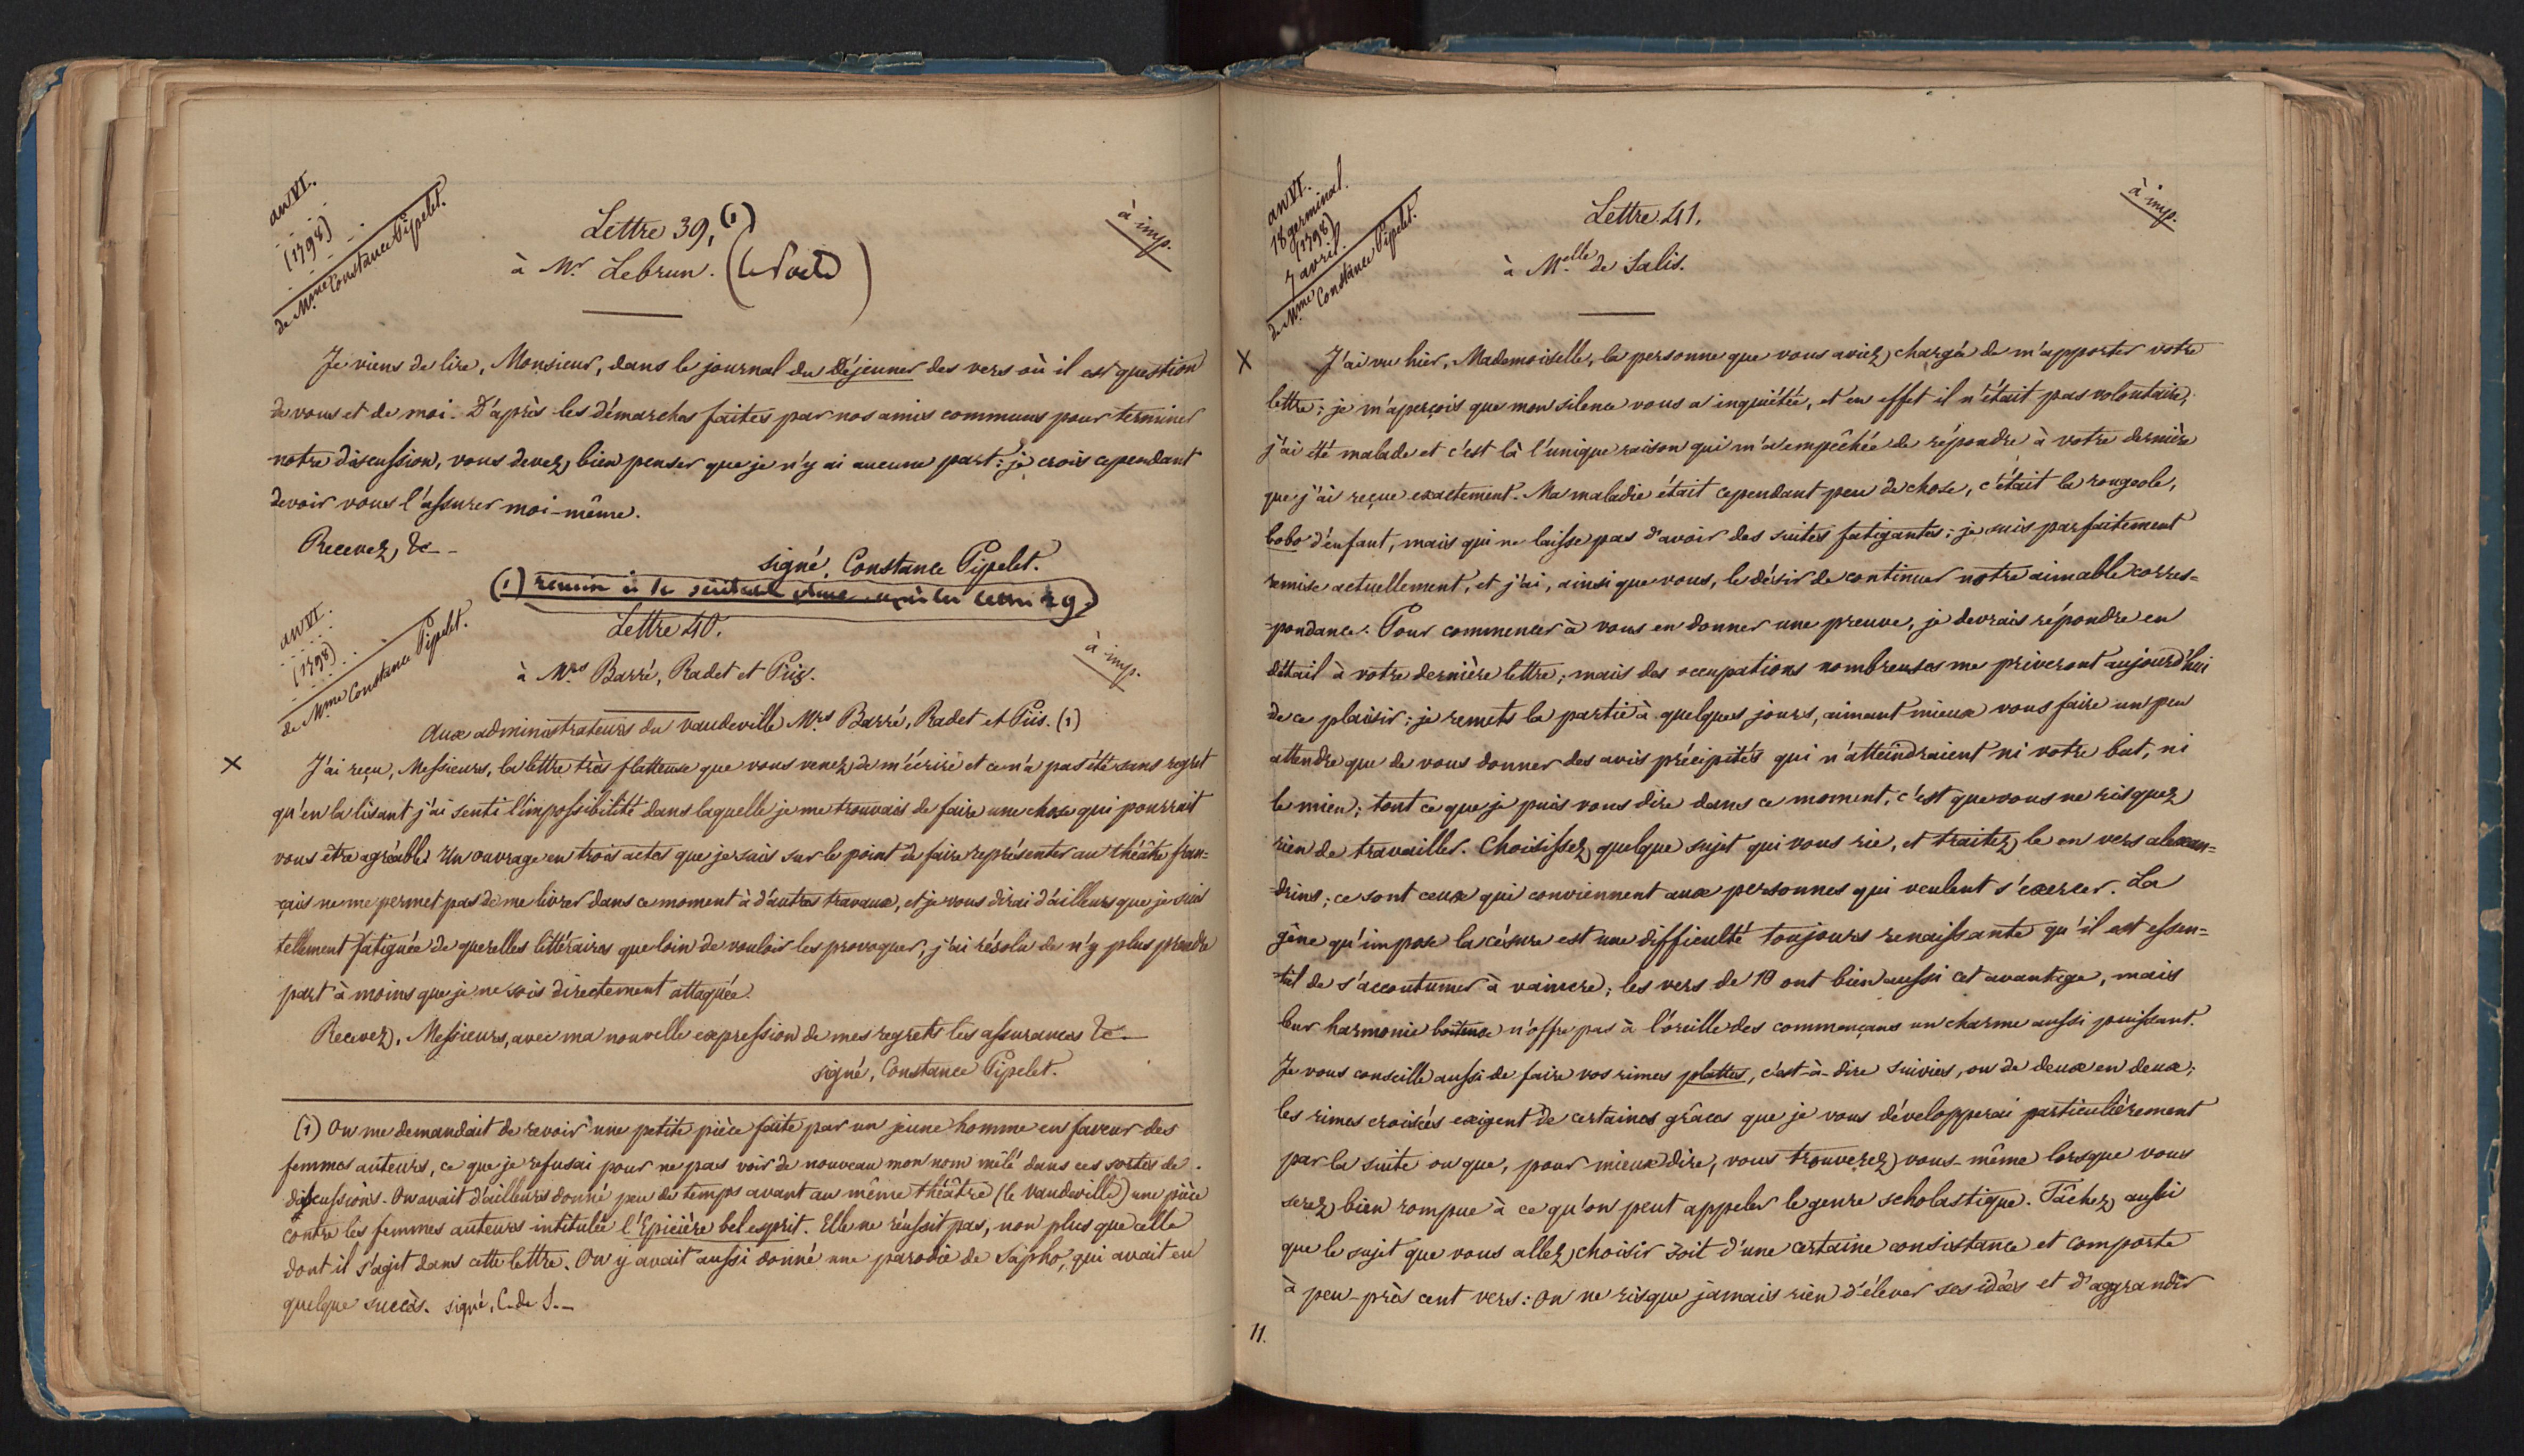 an VI.
(1798)
de Mme Constance Pipelet.
à imp.
Lettre 39, (1)
à Mr. Lebrun. (le Poëte)
Je viens de lire, Monsieur, dans le journal du Déjeuner des vers où il est question
de vous et de moi. D'après les démarches faites par nos amis communs pour terminer
notre discussion, vous devez bien penser que je n'y ai aucune part : je crois cependant
devoir vous l'assurer moi-même.
Recevez, &c
signé, Constance Pipelet.
(1)
an VI.
(1798)
de Mme Constance Pipelet.
Lettre 40.
à Mrs Barré, Radet et Piis.
à imp.
Aux administrateurs du vaudeville Mrs Barré, Radet et Piis. (1)
J'ai reçu, Messieurs, la lettre très flatteuse que vous venez de m'écrire et ce n'a pas été sans regret
qu'en la lisant j'ai senti l'impossibilité dans laquelle je me trouvais de faire une chose qui pourrait
vous être agréable. Un ouvrage en trois actes que je suis sur le point de faire représenter au théâtre fran=
çais ne me permet pas de me livrer dans ce moment à d'autres travaux, et je vous dirai d'ailleurs que je suis
tellement fatiguée de querelles littéraires que loin de vouloir les provoquer, j'ai résolu de n'y plus prendre
part à moins que je ne sois directement attaquée.
Recevez, Messieurs, avec ma nouvelle expression de mes regrets les assurances &c
signé, Constance Pipelet.
(1) On me demandait de revoir une petite pièce faite par un jeune homme en faveur des
femmes auteurs, ce que je refusai pour ne pas voir de nouveau mon nom mêlé dans ces sortes de
discussions. On avait d'ailleurs donné peu de temps avant au même théâtre (le vaudeville) une pièce
contre les femmes auteurs intitulée l'Epicière bel esprit. Elle ne réussit pas, non plus que celle
dont il s'agit dans cette lettre. On y avait aussi donné une parodie de Sapho, qui avait eu
quelque succès. signé, C. de S.
an VI.
18 germinal.
(1798)
7 avril.
de Mme Constance Pipelet.
Lettre 41.
à Melle de Salis.
à imp.
J'ai vu hier, Mademoiselle, la personne que vous aviez chargée de m'apporter votre
lettre ; je m'aperçois que mon silence vous a inquiétée, et en effet il n'était pas volontaire,
j'ai été malade et c'est là l'unique raison qui m'a empêchée de répondre à votre dernière
que j'ai reçue exactement. Ma maladie était cependant peu de chose, c'était la rougeole,
bobo d'enfant, mais qui ne laisse pas d'avoir des suites fatigantes ; je suis parfaitement
remise actuellement, et j'ai, ainsi que vous, le désir de continuer notre aimable corres=
=pondance. Pour commencer à vous en donner une preuve, je devrais répondre en
détail à votre dernière lettre ; mais des occupations nombreuses me priveront aujourd'hui
de ce plaisir ; je remets la partie à quelques jours, aimant mieux vous faire un peu
attendre que de vous donner des avis précipités qui n'atteindraient ni votre but, ni
le mien ; tout ce que je puis vous dire dans ce moment, c'est que vous ne risquez
rien de travailler. Choisissez quelque sujet qui vous rie, et traitez le en vers alexan=
=drins ; ce sont ceux qui conviennent aux personnes qui veulent s'exercer. La
gêne qu'impose la césure est une difficulté toujours renaissante qu'il est essen=
=tiel de s'accoutumer à vaincre ; les vers de 10 ont bien aussi cet avantage, mais
leur harmonie boiteuse n'offre pas à l'oreille des commençans un charme aussi puissant.
Je vous conseille aussi de faire vos rimes plattes, c'est-à-dire suivies, ou de deux en deux ;
les rimes croisées exigent de certaines grâces que je vous développerai particulièrement
par la suite ou que, pour mieux dire, vous trouverez vous-même lorsque vous
serez bien rompue à ce qu'on peut appeler le genre scholastique. Tâchez aussi
que le sujet que vous allez choisir soit d'une certaine consistance et comporte
à peu-près cent vers : on ne risque jamais rien d'élever ses idées et d'aggrandir
11.